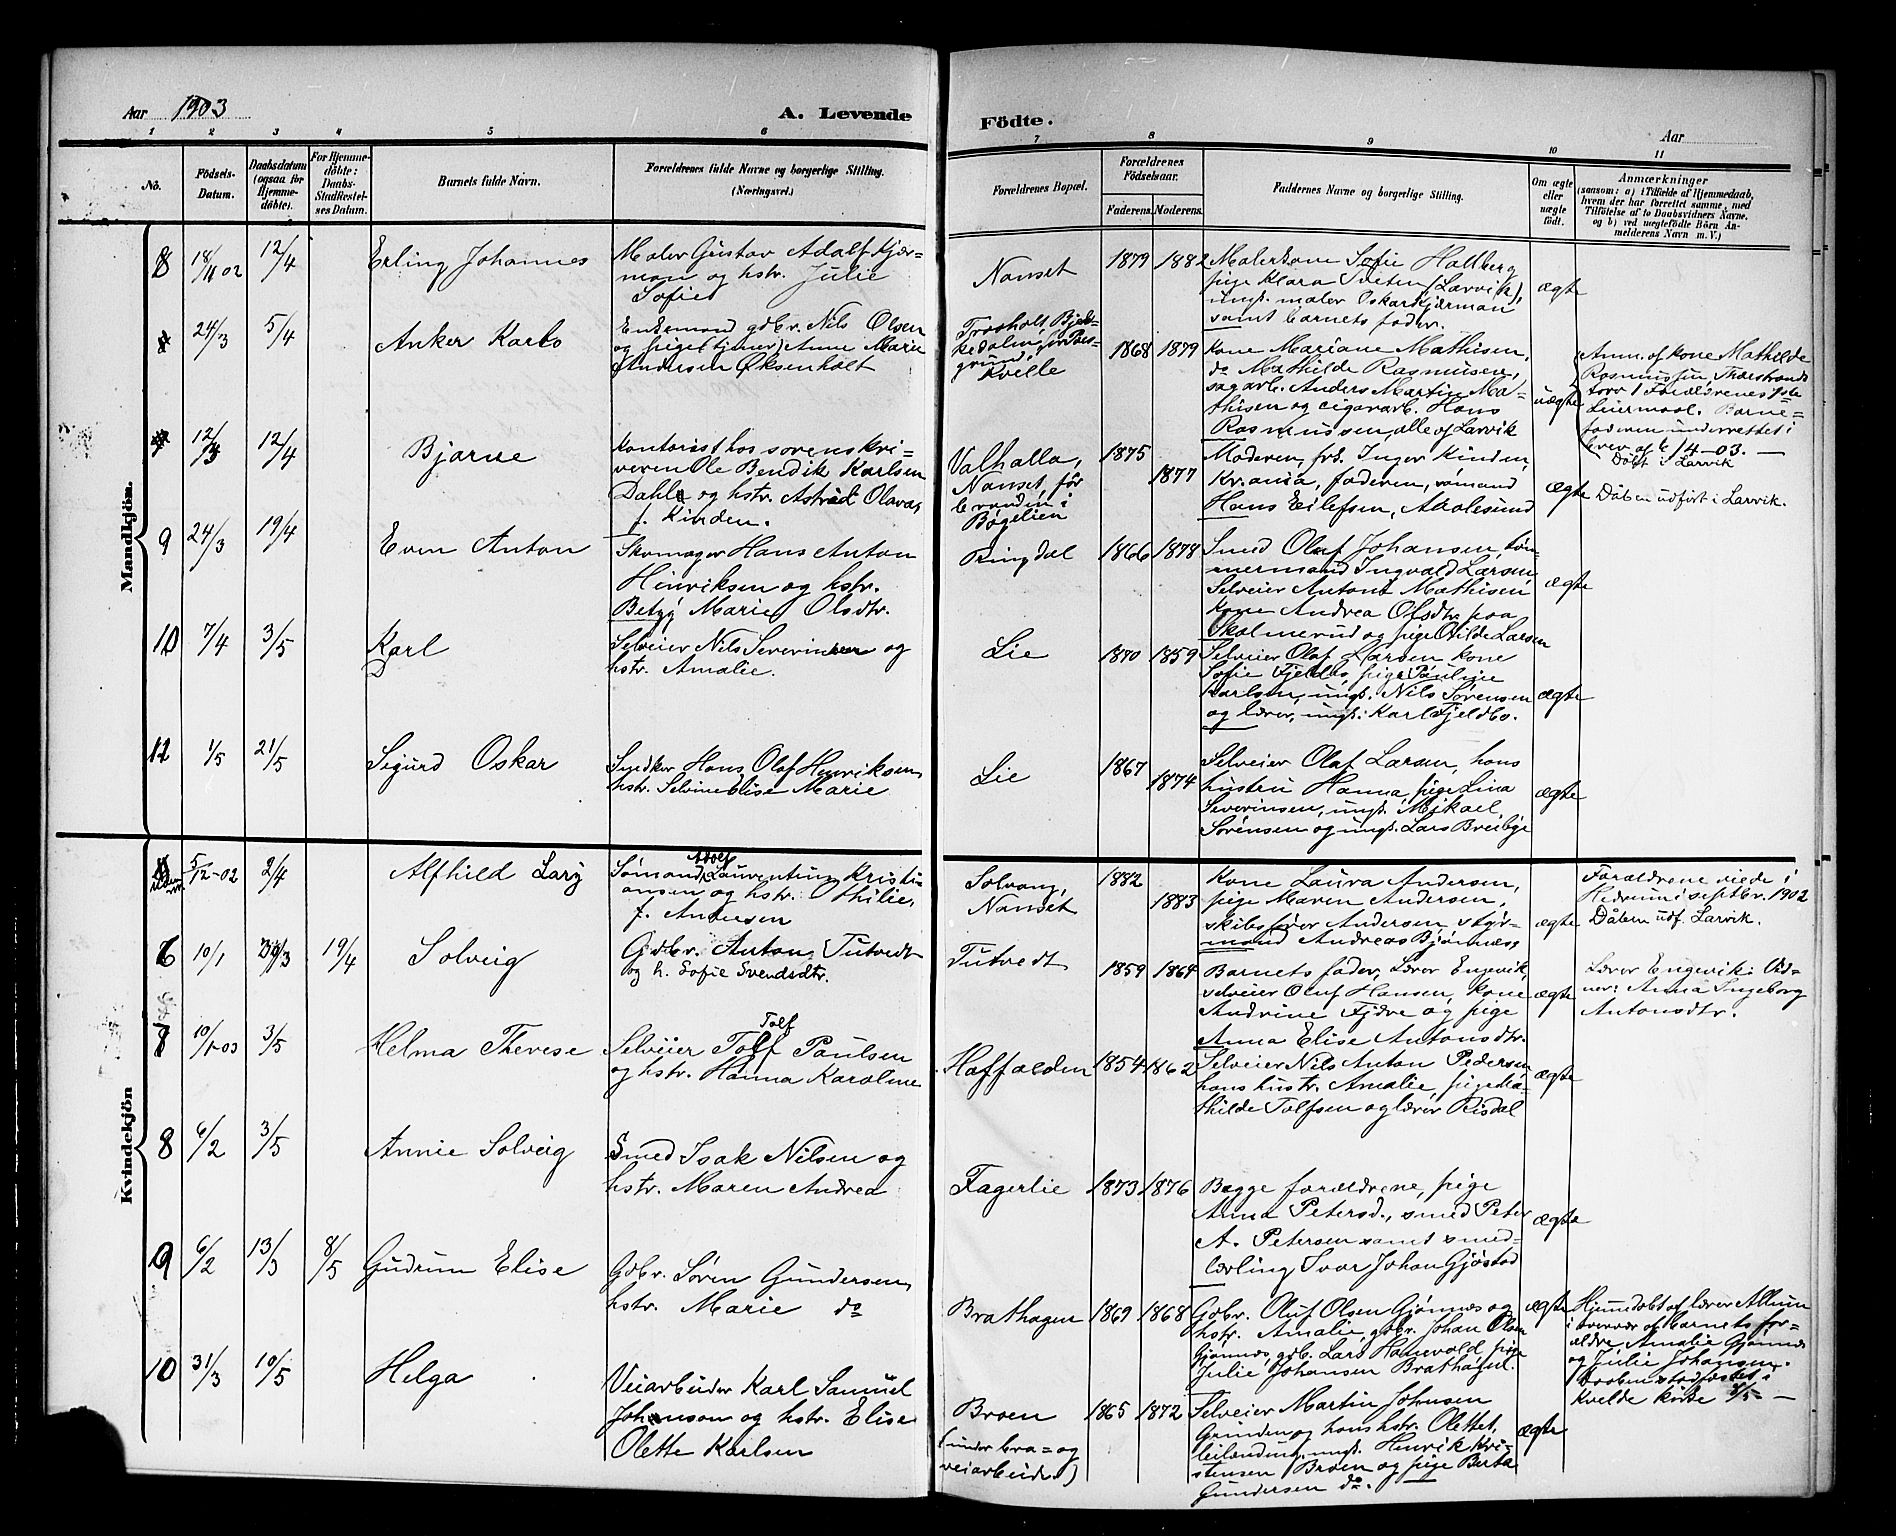 Aar 1903
A. Levende
Födte.
Aar
1 2 3 4 5 6 7 8 9 10 11
No.
Födsels-Datum.
Daabsdatum (ogsaa for Hjemme-döbte).
For Hjemme-döbte: Daabs-Stadfæstel-ses Datum.
Barnets fulde Navn.
Forældrenes fulde Navne og borgerlige Stilling. (Næringsvei.)
Forældrenes Bopæl.
Forældrenes Födselsaar.
Faderens. Moderens.
Faddernes Navne og borgerlige Stilling.
Om ægte eller uægte födt.
Anmærkninger
(saasom: a) i Tilfælde af Hjemmedaab,
hvem der har forrettet samme, med
Tilföielse af to Daabsvidners Navne,
og b) ved uægtefödte Börn An-
melderens Navn m. V.)
Mandkjön.
8 18/11 02 12/4 Erling Johannes
Maler Gustav Adolf Kjær-
man og hstr. Julie
Sofie
Nanset 1879 1882
Malerkone Sofie Hallberg
pige Klara Tveten (Larvik),
ungk. maler Oskar Kjærman
samt barnets fader.
ægte
24/3 5/4 Anker Karlo
Enkemand gdbr. Nils Olsen
og pige (tjener) Anne Marie
Andersen Øksenholt
Kvelle
1868 1879
Kone Mariane Mathisen,
do Mathilde Rasmusen,
sagarb. Anders Martin Ma-
thisen og cigararb. Hans
Rasmussen, alle af Larvik
uægte
Anm. af kone Mathilde
Rasmussen, Thorstrands
torv 1 Forældrenes 1ste
Leiermaal. Barne-
faderen underrettet i
brev af 6/4-03. —
Døbt i Larvik
12/3 12/4 Bjarne
Kontorist hos sorenskri-
veren Ole Bendik Karlsen
Dahl og hstr. Astrid Olava,
f. Kinden.
Valhalla,
Nanset, før
branden i
Bøgelien
1875 1877
Moderen, frk. Inger Kinden,
Kr.ania, faderen, sømand
Hans Eilefsen, Aalesund
ægte
Dåben udført i Larvik.
9 24/3 19/4 Even Anton
Skomager Hans Anton
Henriksen og hstr.
Betzy Marie Olsdtr.
Ringdal 1866 1878
Smed Olaf Johansen, tøm-
mermand Ingvald Larsen
Selveier Anton Mathisen
Kone Andrea Olsdtr. paa
Skalmerud og pige Hilde Larsen
ægte
10 7/4 3/5 Karl
Selveier Nils Severinsen og
hstr. Amalie.
Lie 1870 1859
Selveier Olaf Larsen, kone
Sofie Fjeldbo, pige Pauline
Karlsen, ungk. Nils Sørensen
og lærer, ungk. Karl Fjeldbo.
ægte
12 1/5 21/5 Sigurd Oskar
Snedker Hans Olaf Henriksen,
hstr. Selvine Elise Marie
Lie 1867 1874
Selveier Olaf Larsen, hans
hustru Hanna, pige Lina
Severinsen, ungk. Mikael
Sørensen og ungk. Lars Breibye
ægte
Kvindekjön
5/12-02 2/4 Alfhild Lary
Adolf
Sømand Laurentius Kristi-
ansen og hstr. Othilie,
f. Andersen
Solvang,
Nanset
1882 1883
Kone Laura Andersen,
pige Maren Andersen,
skibsfører Andersen, styr-
mand Andreas Bjønnæss
ægte
Forældrene viede i
Hedrum i septbr. 1902
Dåben udf. Larvik.
6 10/1 19/4 Solveig
Gdbr. Anton Tutvedt
og h. Sofie Svendsdtr.
Tutvedt 1859 1864
Barnets fader, Lærer Engevik,
selveier Oluf Hansen, kone
Andrine Fjære og pige
Anna Elise Antonsdtr.
ægte
Lærer Engevik. Vid-
ner: Anna Ingeborg
Antonsdtr.
7 10/1-03 3/5 Helma Therese
Tolf
Selveier Tolf Paulsen
og hstr. Hanna Karoline
Haffalden 1854 1862
Selveier Nils Anton Pedersen,
hans hustr. Amalie, pige Ma-
thilde Tolfsen og lærer Risdal
ægte
8 6/2 3/5 Annie Solveig
Smed Isak Nilsen og
hstr. Maren Andrea
Fagerlie 1873 1876
Begge forældrene, pige
Anna Petersd., smed Peter
A. Petersen samt smed-
lærling Ivar Johan Gjøstad
ægte
9 6/2 13/3 8/5 Gudrun Elise
Gdbr. Søren Gundersen,
hstr. Marie do
Brathagen 1869 1868
Gdbr. Oluf Olsen Gjønnæs og
hstr. Amalie, gdbr. Johan Olsen
Gjønnæs, gdb. Lars Hanevold, pige
Julie Johansen Brathagen.
ægte
Hjemmdøbt af lærer Allum
i overvær af barnets for-
ældre, Amalie Gjønnæs
og Julie Johansen.
Daaben stadfæstet i
Kvelde kirke 8/5 —
10 31/3 10/5 Helga
Veiarbeider Karl Samuel
Johanson og hstr. Elise
Olette Karlsen
Broen
(under bra- og
veiarbeide.)
1865 1872
Selveier Martin Johnsen
Grinden og hans hstr. Olettet,
ungk. Henrik Kri-
stensen Broen og pige Berta
Gundersen do.
ægte